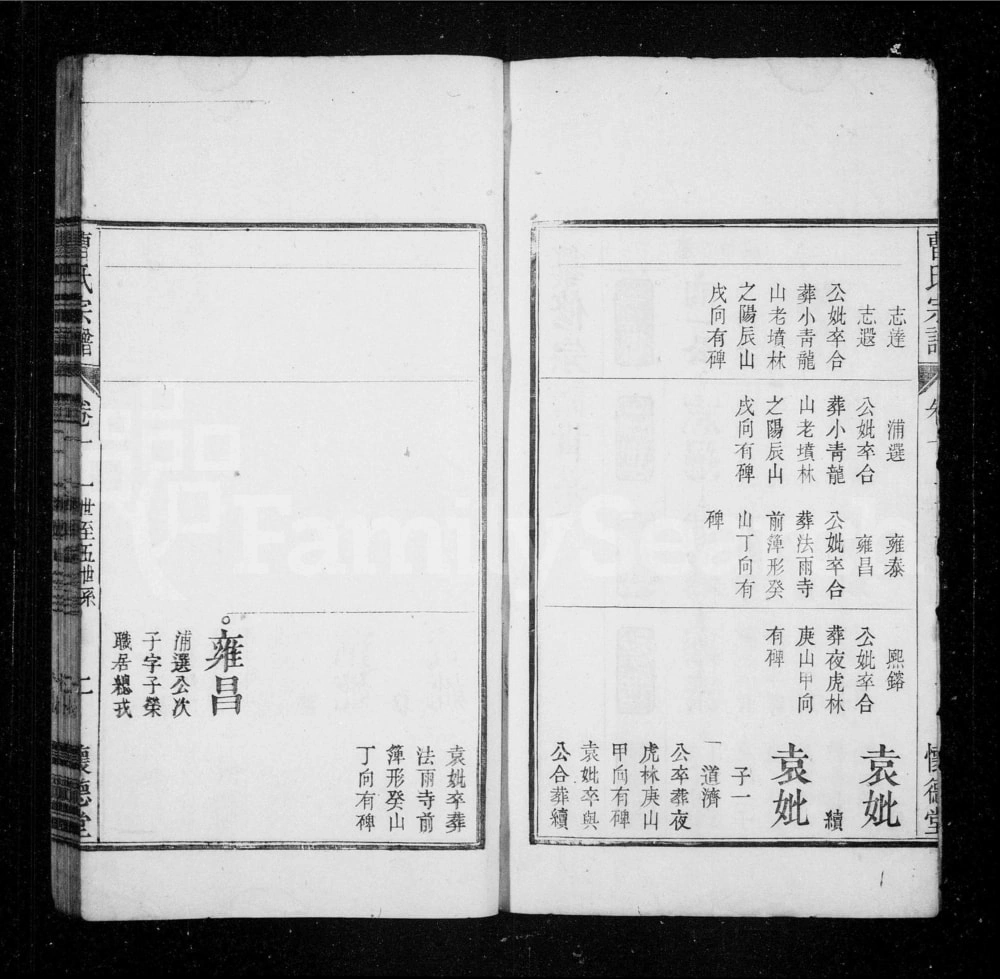 曹氏宗譜
懷德堂
志達
志遐
公妣卒合
葬小青龍
山老墳林
之陽辰山
戌向有碑
浦選
公妣卒合
葬小青龍
山老墳林
之陽辰山
戌向有碑
雍泰
雍昌
公妣卒合
葬法雨寺
前簰形癸
山丁向有
碑
熙鎔
公妣卒合
葬夜虎林
庚山甲向
有碑
袁妣
續
袁妣
子一
一道濟
公卒葬夜
虎林庚山
甲向有碑
袁妣卒與
公合葬續
袁妣卒葬
法雨寺前
簰形癸山
丁向有碑
雍昌
浦選公次
子字子榮
職居總戎
曹氏宗譜
卷一
一世至五世系
二
懷德堂
FamilySearch